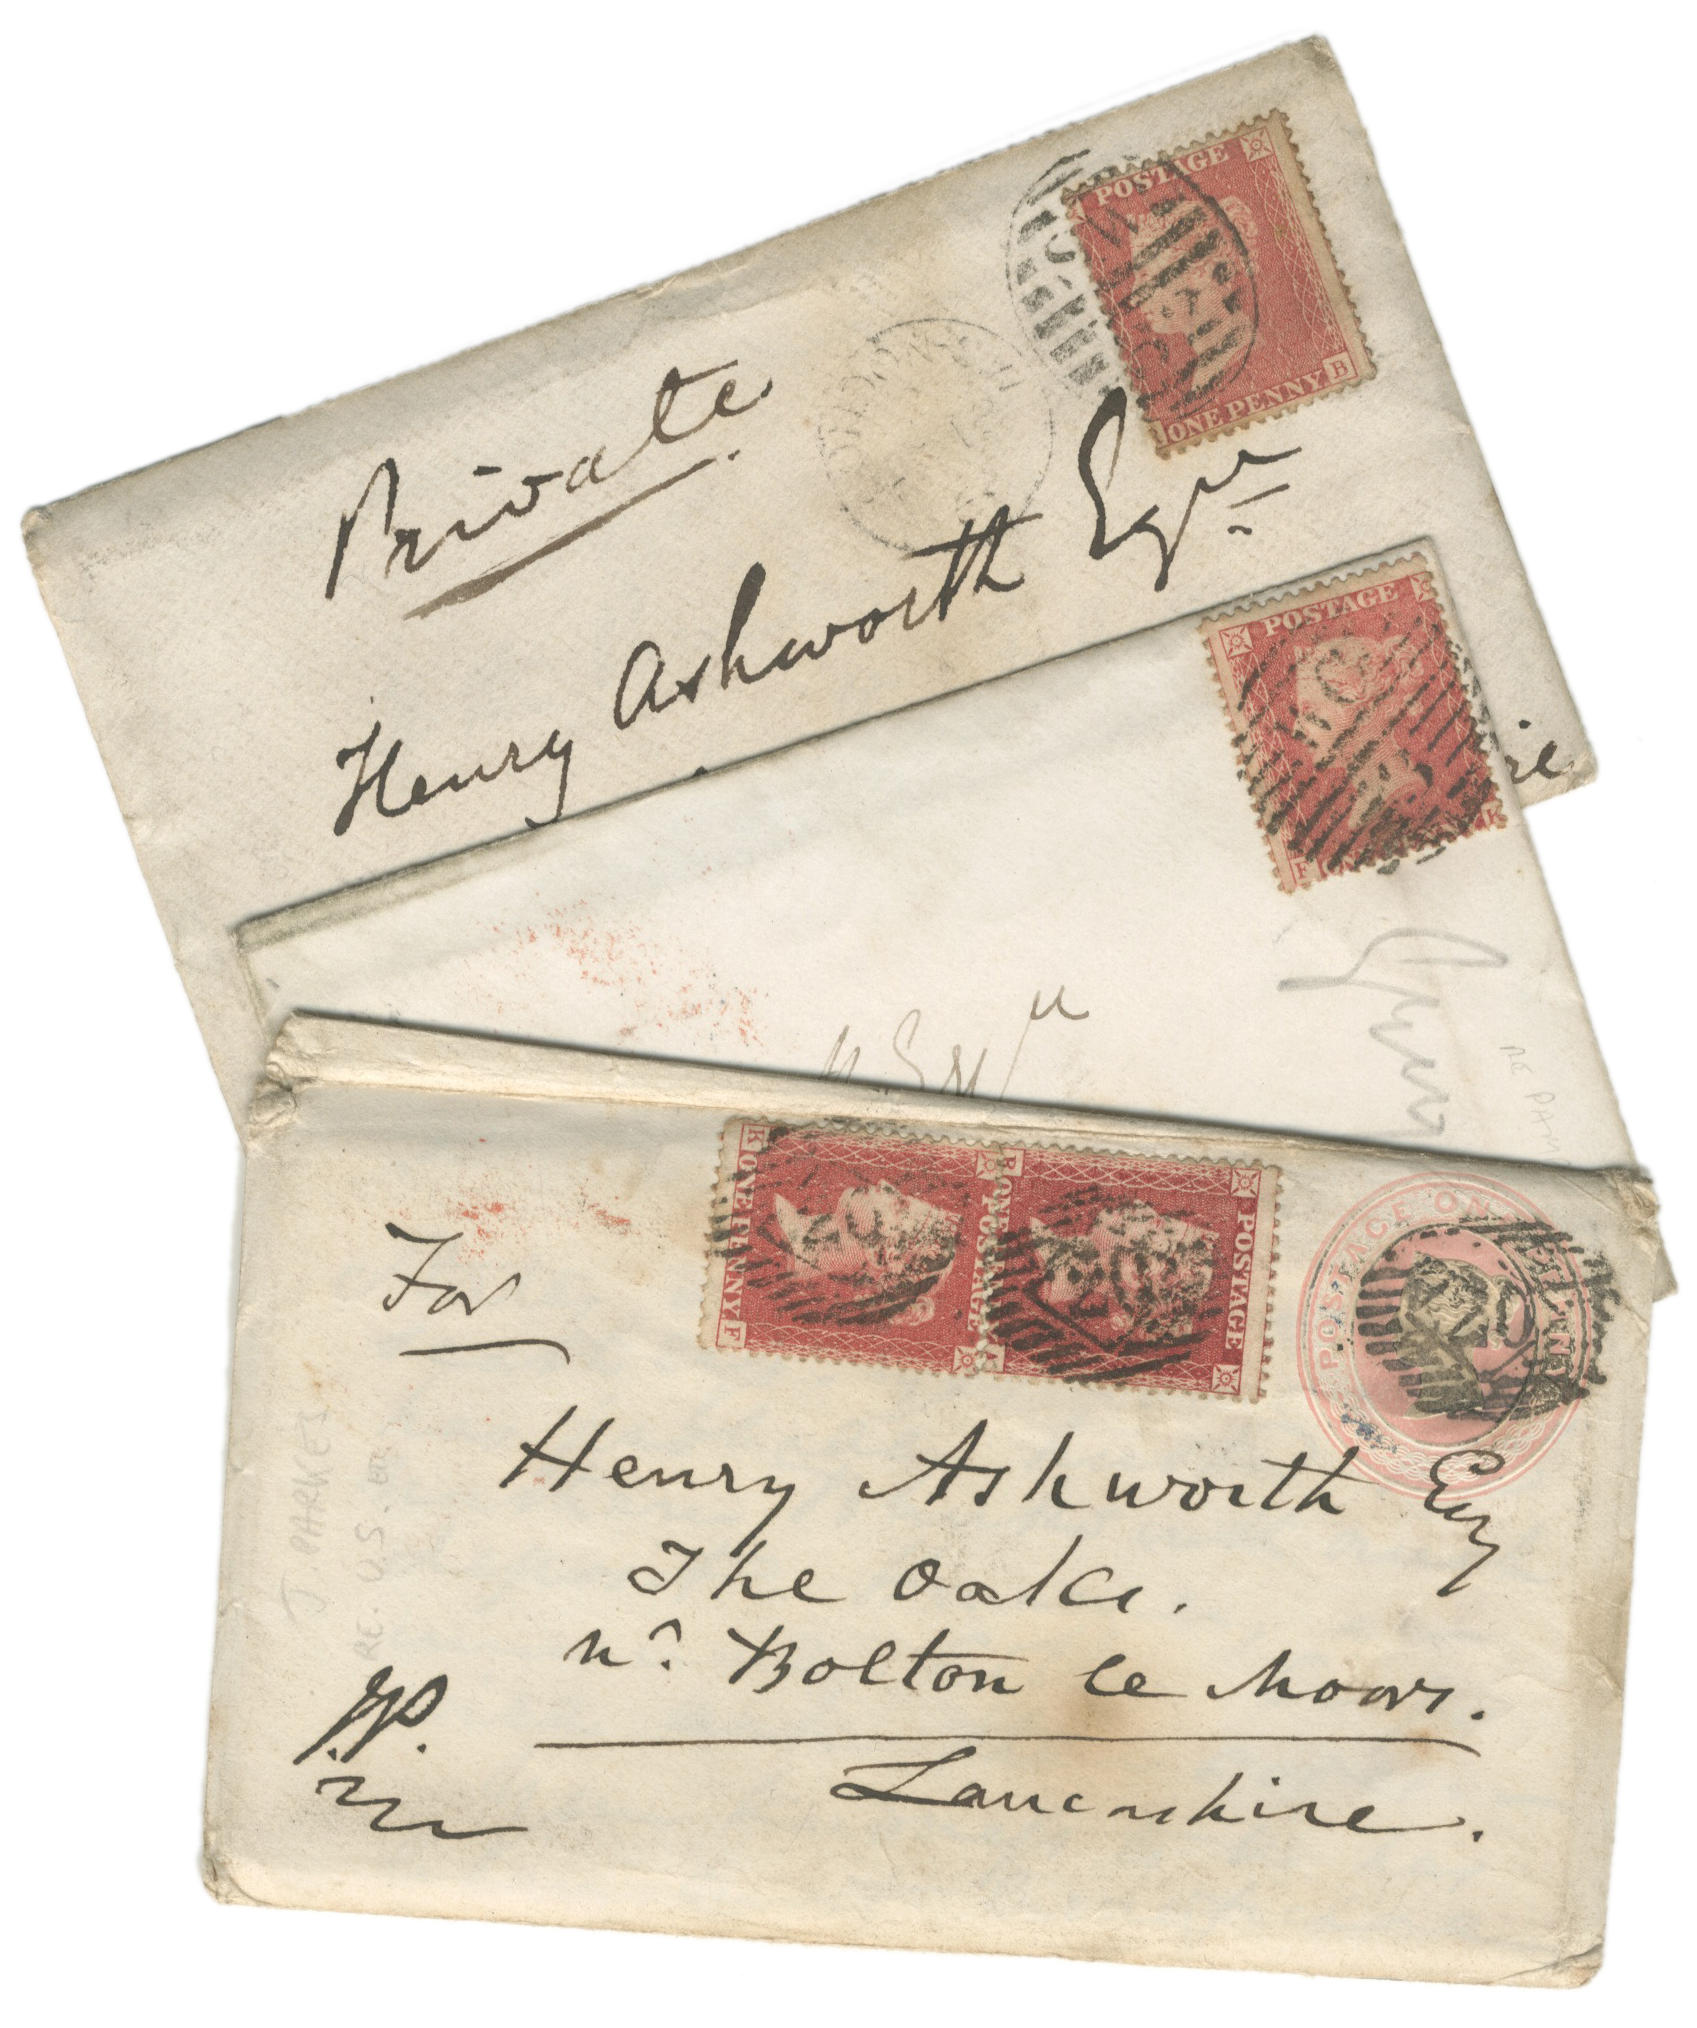 POSTAGE
ONE PENNY
B
Private.
Henry Ashworth Esqr
POSTAGE
F
K
RE PAM
K ONE PENNY. F
POSTAGE
POSTAGE
POSTAGE ONE PENNY
For
Henry Ashworth Esq
The Oaks.
nr. Bolton le Moors.
Lancashire.
J. PARKES
RE. U.S.